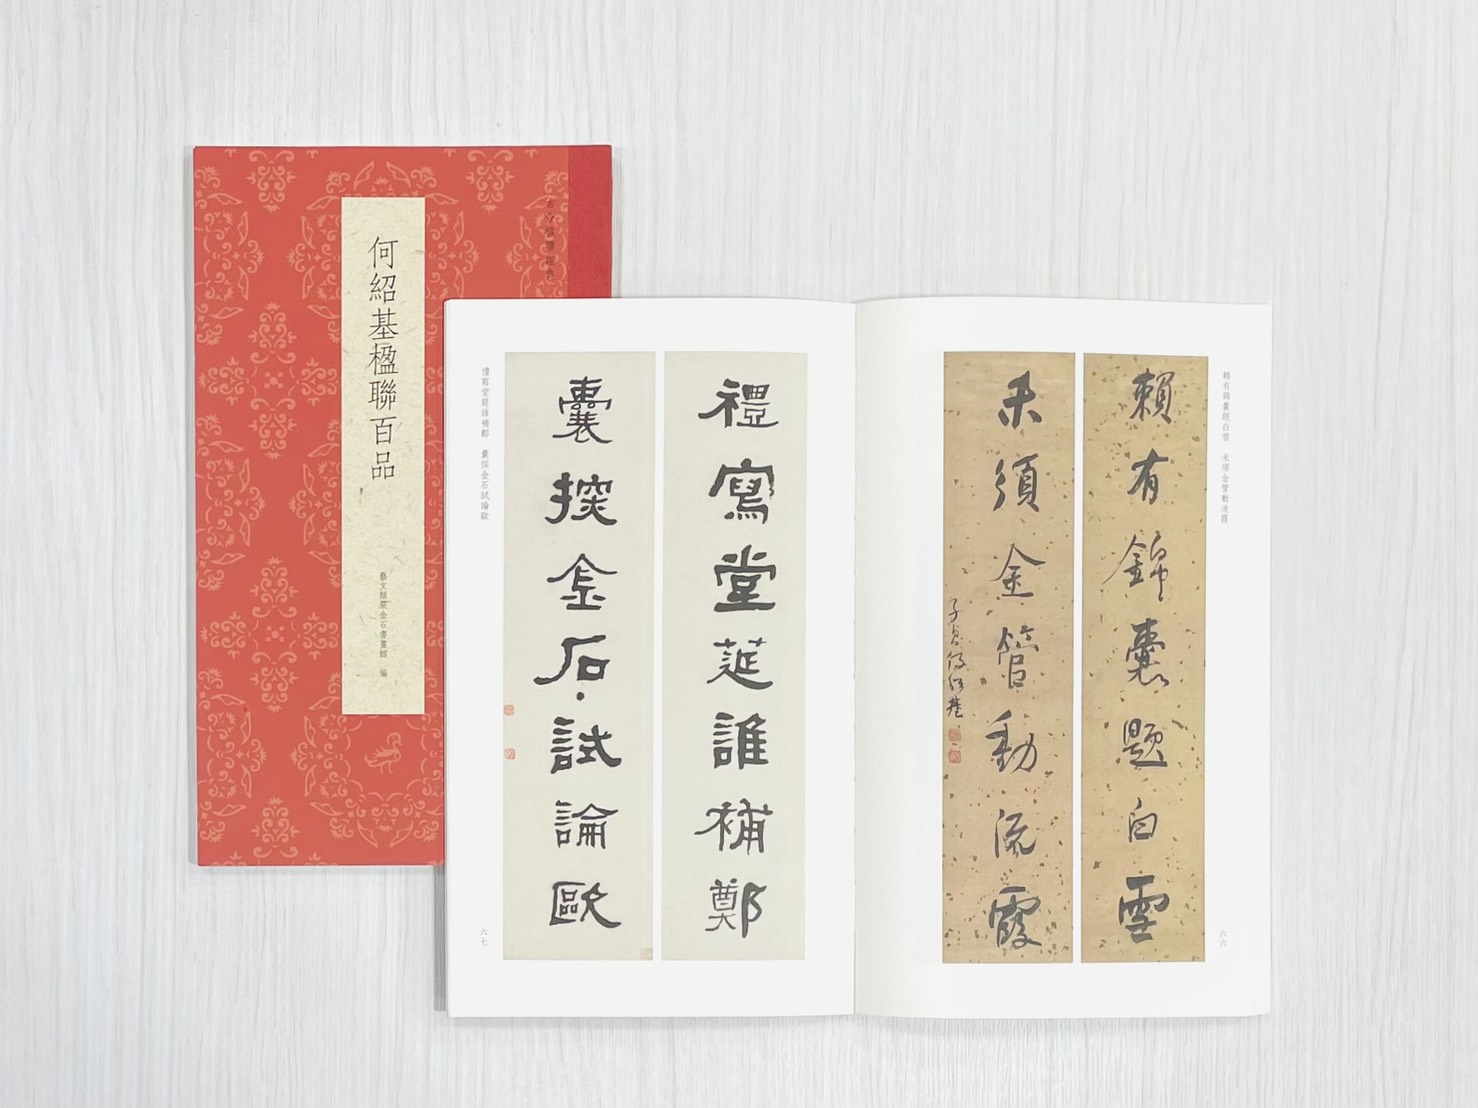 何紹基楹聯百品
藝文類聚金石書畫館 編
賴有錦囊題白雪 未須金管動流霞
賴有錦囊題白雪
未須金管動流霞
子貞何紹基
六六
禮寫堂莚誰補鄭
囊探金石試論歐
禮寫堂莚誰補鄭 囊探金石試論歐
六七